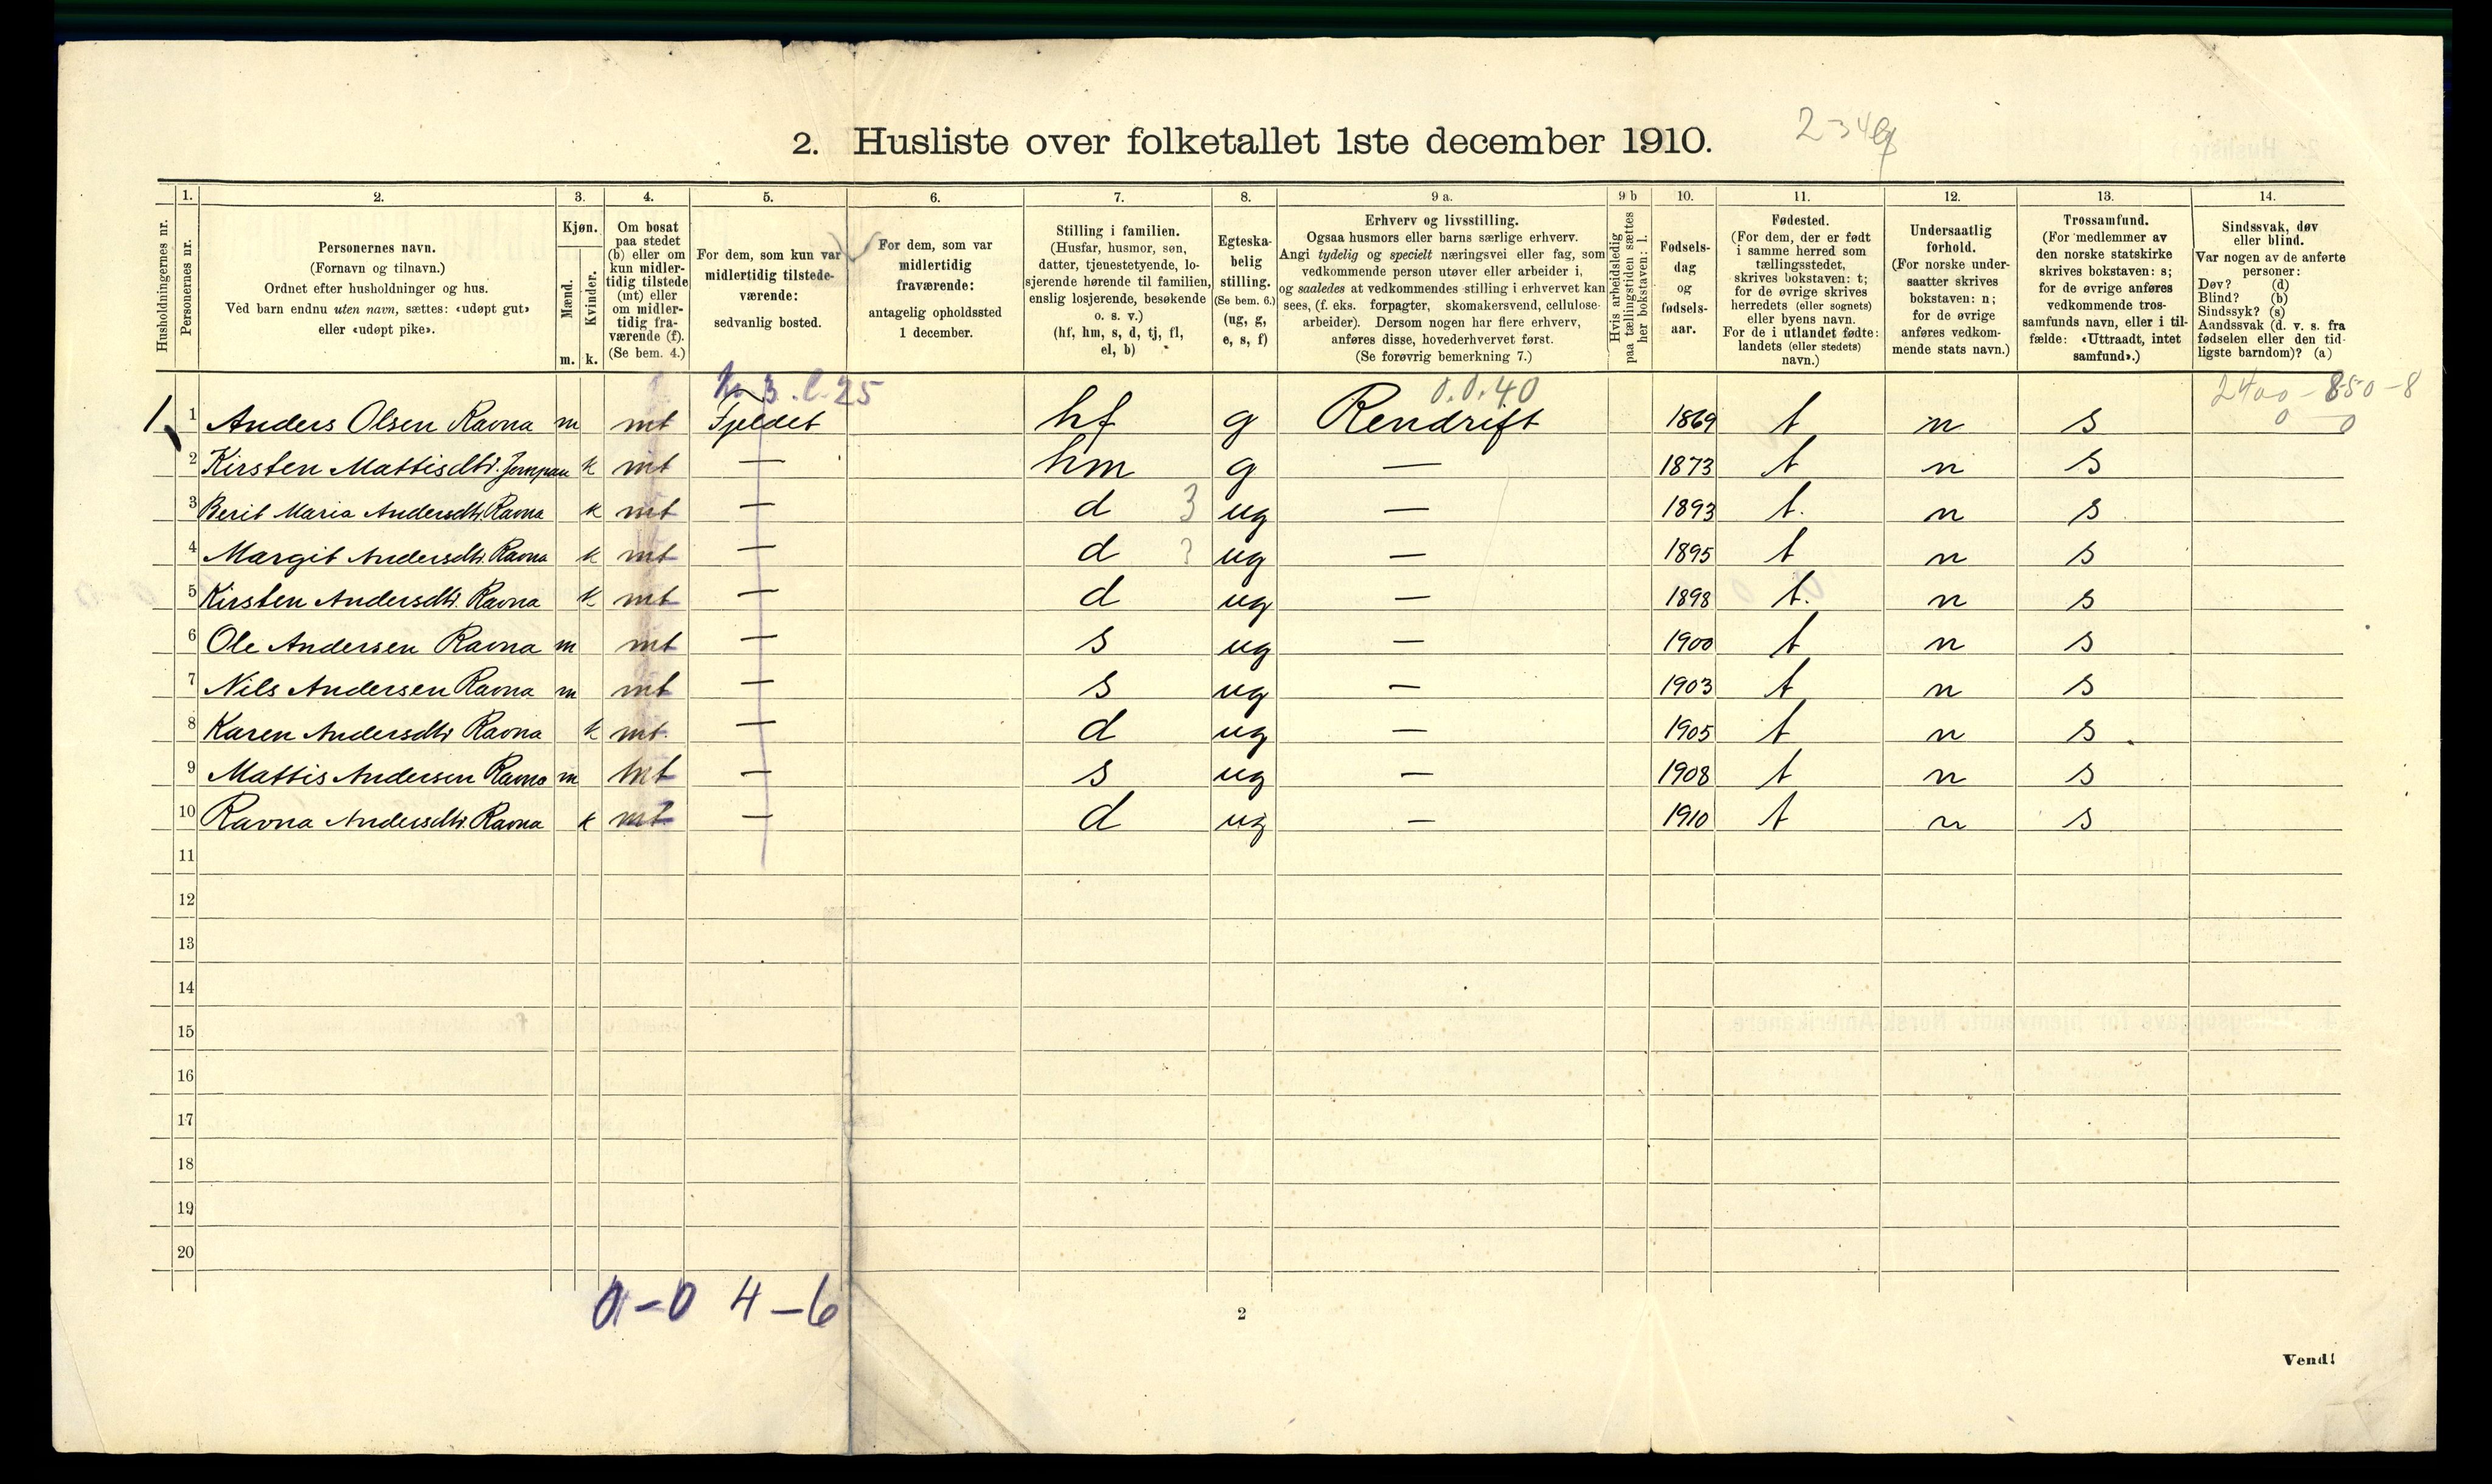 2. Husliste over folketallet 1ste december 1910.
1. 2. 3. 4. 5. 6. 7. 8. 9 a. 9 b 10. 11. 12. 13. 14.
Husholdningernes nr.
Personernes nr.
Personernes navn.
(Fornavn og tilnavn.)
Ordnet efter husholdninger og hus.
Ved barn endnu uten navn, sættes: «udøpt gut»
eller «udøpt pike».
Kjøn.
Mænd.
Kvinder.
m. k.
Om bosat
paa stedet
(b) eller om
kun midler-
tidig tilstede
(mt) eller
om midler-
tidig fra-
værende (f).
(Se bem. 4.)
For dem, som kun var
midlertidig tilstede-
værende:
sedvanlig bosted.
For dem, som var
midlertidig
fraværende:
antagelig opholdssted
1 december.
Stilling i familien.
(Husfar, husmor, søn,
datter, tjenestetyende, lo-
sjerende hørende til familien,
enslig losjerende, besøkende
o. s. v.)
(hf, hm, s, d, tj, fl,
el, b)
Egteska-
belig
stilling.
(Se bem. 6.)
(ug, g,
e, s, f)
Erhverv og livsstilling.
Ogsaa husmors eller barns særlige erhverv.
Angi tydelig og specielt næringsvei eller fag, som
vedkommende person utøver eller arbeider i,
og saaledes at vedkommendes stilling i erhvervet kan
sees, (f. eks. forpagter, skomakersvend, cellulose-
arbeider). Dersom nogen har flere erhverv,
anføres disse, hovederhvervet først.
(Se forøvrig bemerkning 7.)
Hvis arbeidsledig
paa tællingstiden sættes
her bokstaven: l.
Fødsels-
dag
og
fødsels-
aar.
Fødested.
(For dem, der er født
i samme herred som
tællingsstedet,
skrives bokstaven: t;
for de øvrige skrives
herredets (eller sognets)
eller byens navn.
For de i utlandet fødte:
landets (eller stedets)
navn.)
Undersaatlig
forhold.
(For norske under-
saatter skrives
bokstaven: n;
for de øvrige
anføres vedkom-
mende stats navn.)
Trossamfund.
(For medlemmer av
den norske statskirke
skrives bokstaven: s;
for de øvrige anføres
vedkommende tros-
samfunds navn, eller i til-
fælde: «Uttraadt, intet
samfund».)
Sindssvak, døv
eller blind.
Var nogen av de anførte
personer:
Døv? (d)
Blind? (b)
Sindssyk? (s)
Aandssvak (d. v. s. fra
fødselen eller den tid-
ligste barndom)? (a)
0.0.40 2400-850-8
0 0
1. 1 Anders Olsen Ravna m mt Fjeldet hf g Rendrift 1869 t n s
2 Kirsten Mattisdtr. k mt — hm g — 1873 t n s
3 Berit Maria Andersdtr. Ravna k mt — d 3 ug — 1893 t. n s
4 Margit Andersdtr. Ravna k mt — d ug — 1895 t n s
5 Kirsten Andersdtr. Ravna k mt — d ug — 1898 t. n s
6 Ole Andersen Ravna m mt — s ug — 1900 t n s
7 Nils Andersen Ravna m mt — s ug — 1903 t n s
8 Karen Andersdtr Ravna k mt. — d ug — 1905 t n s
9 Mattis Andersen Ravna m mt — s ug — 1908 t n s
10 Ravna Andersdtr. Ravna k mt — d ug — 1910 t n s
11
12
13
14
15
16
17
18
19
20
0-0 4-6
2
Vend!